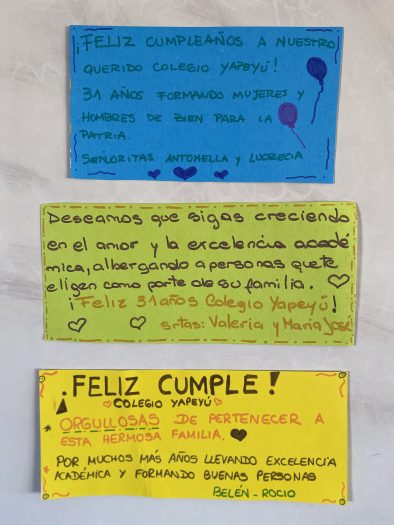 ¡FELIZ CUMPLEAÑOS A NUESTRO
QUERIDO COLEGIO YAPEYÚ!
31 AÑOS FORMANDO MUJERES Y
HOMBRES DE BIEN PARA LA
PATRIA.
SEÑORITAS ANTONELLA Y LUCRECIA
Deseamos que sigas creciendo
en el amor y la excelencia acadé
mica, albergando a personas que te
eligen como parte de su familia.
¡Feliz 31 años Colegio Yapeyú!
srtas: Valeria y María José
¡FELIZ CUMPLE!
COLEGIO YAPEYÚ
ORGULLOSAS DE PERTENECER A
ESTA HERMOSA FAMILIA.
POR MUCHOS MÁS AÑOS LLEVANDO EXCELENCIA
ACADÉMICA Y FORMANDO BUENAS PERSONAS
BELÉN - ROCIO